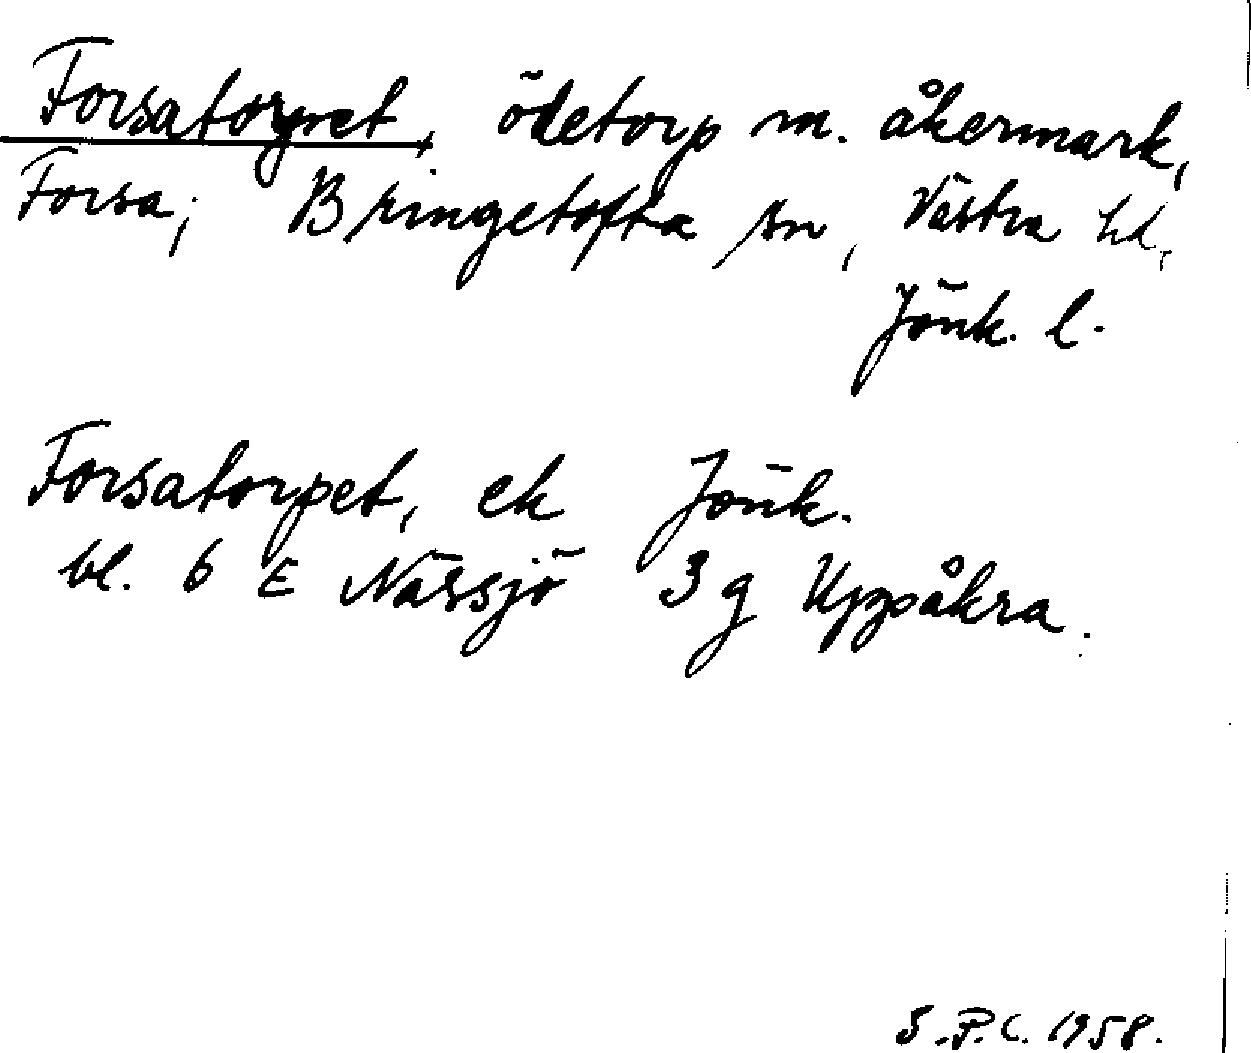 Forsatorpet, ödetorp m. åkermark,
Forsa; Bringetofta sn, Västra hd,
Jönk. l.
Forsatorpet, ek Jönk.
bl. 6 E Nässjö 3 g Uppåkra.
S.P.C. 1958.